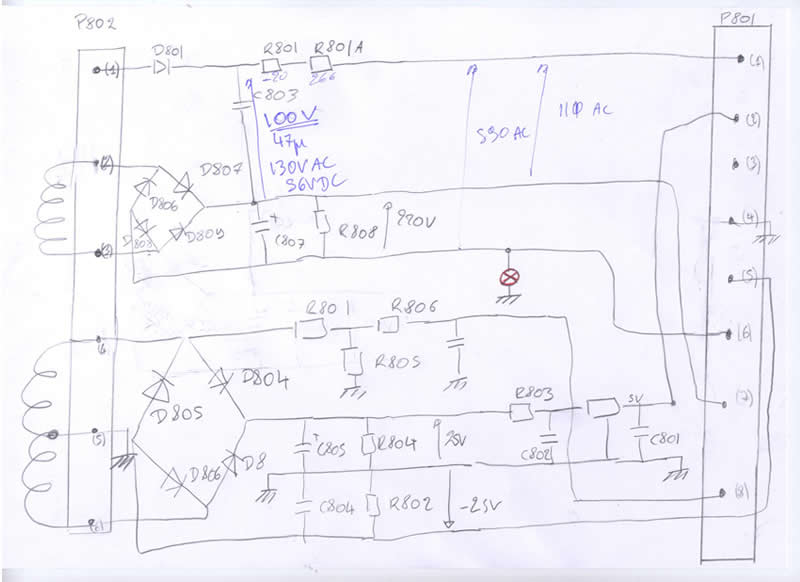 P802
P801
D801
R801
R801A
(1)
(1)
-20
266
C803
100V
47µ
130VAC
56VDC
530 AC
110 AC
(2)
(2)
(3)
(4)
D807
D806
D808
D809
(3)
C807
R808
220V
(5)
R801
R806
(6)
R805
D804
D805
R803
5V
(7)
(5)
C805
R804
25V
C802
C801
D806
D8
C804
R802
-25V
(8)
(6)